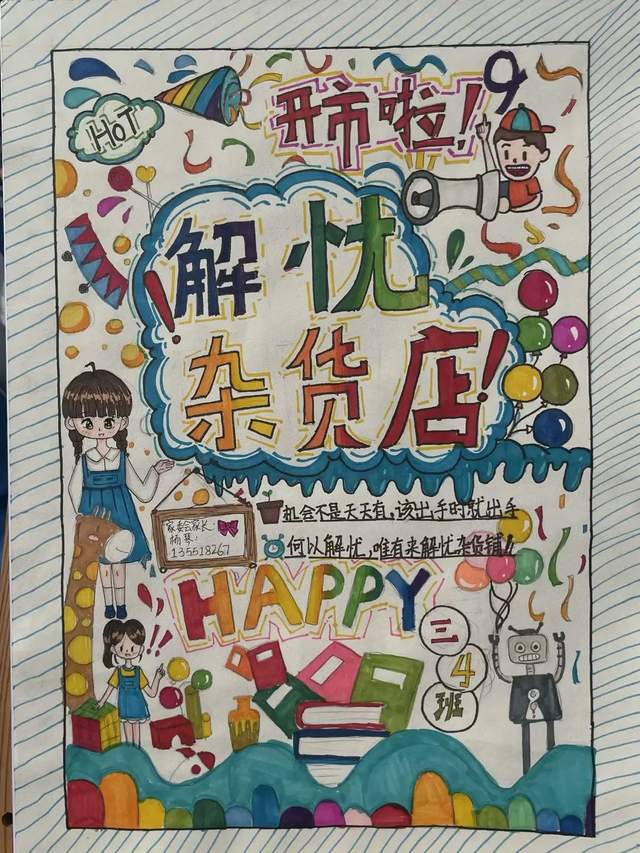 HOT
开市啦！
9
解忧
杂货店！
家委会家长:
杨琴:
135518267
机会不是天天有,该出手时就出手
何以解忧,唯有来解忧杂货铺!!
HAPPY
三
4
班